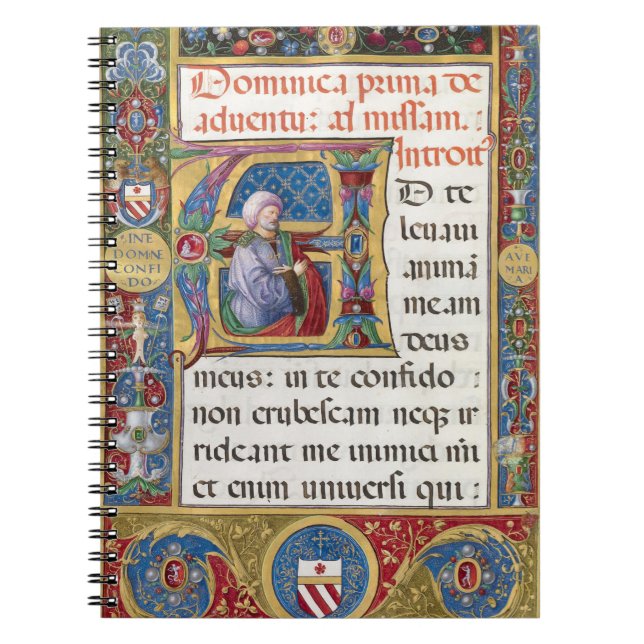 Dominica prima de
aduentu: ad missam.
Introit
AD te
leuaui
animā
meam
deus
meus: in te confido
non erubescam neqʒ ir
rideant me inimici mi
et enim uniuersi qui:
INE
DOMNE
CONFI
DO
AVE
MARI
A